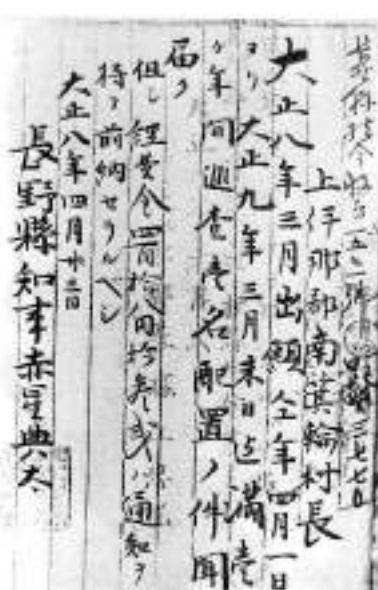 長野縣指令収方一五二號
上伊那郡南箕輪村長
大正八年三月出願仝年四月一日
ヨリ大正九年三月末日迄満壱
ケ年間巡査壱名配置ノ件聞
届ク
但シ經費金四百拾円拾参銭ハ通知ヲ
待テ前納セラルベシ
大正八年四月廿三日
長野縣知事赤星典太